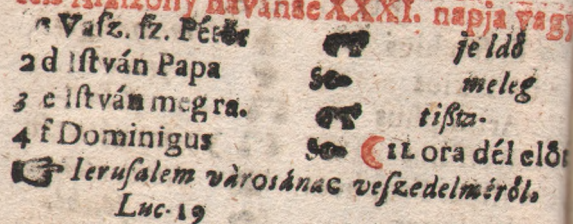 Aſzſzony havánac XXXI. napja vagy
Vaſz. ſz. Péter je ldő
2 d Iſtván Papa meleg
3 e Iſtván meg ra. tißta.
4 f Dominigus ☾ 11 ora dél előt
☞ Ieruſalem városánac veſzedelméről.
Luc. 19